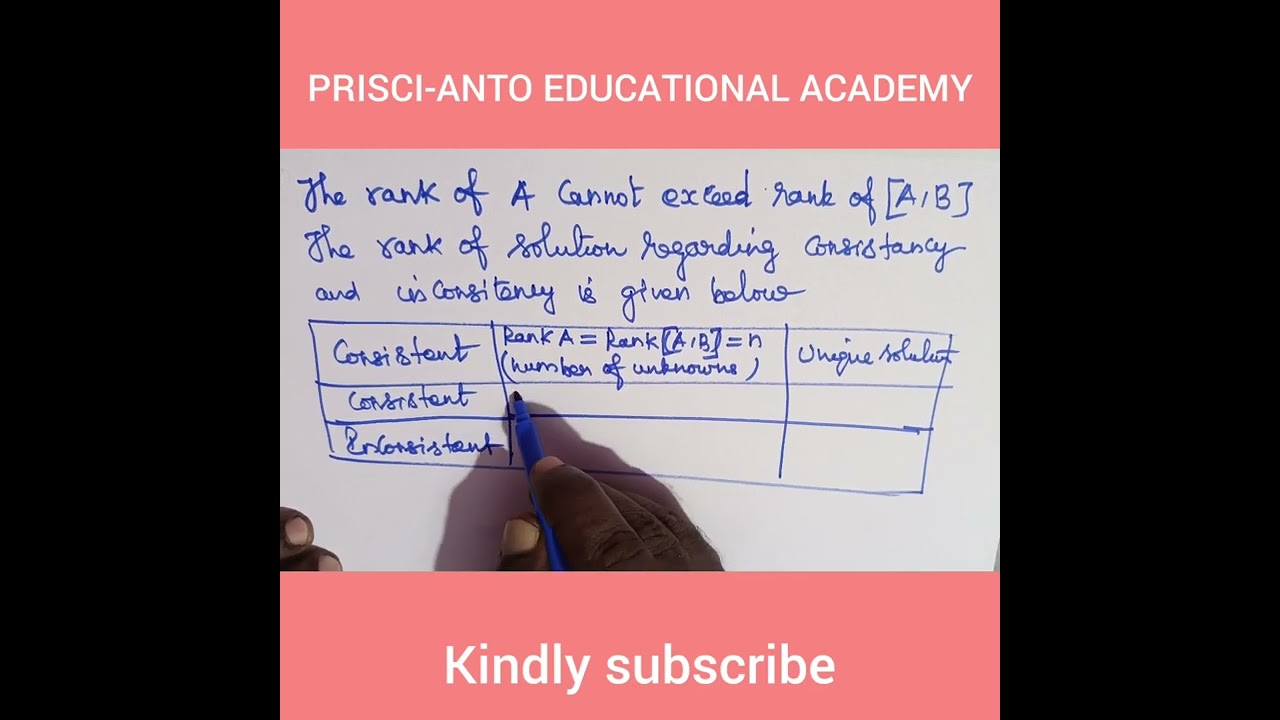 PRISCI-ANTO EDUCATIONAL ACADEMY
The rank of A cannot exceed rank of [A,B]
The rank of solution regarding consistancy
and inconsitency is given below
Consistent
Rank A = Rank [A,B] = n
(number of unknowns)
Unique solution
Consistent
Inconsistent
Kindly subscribe